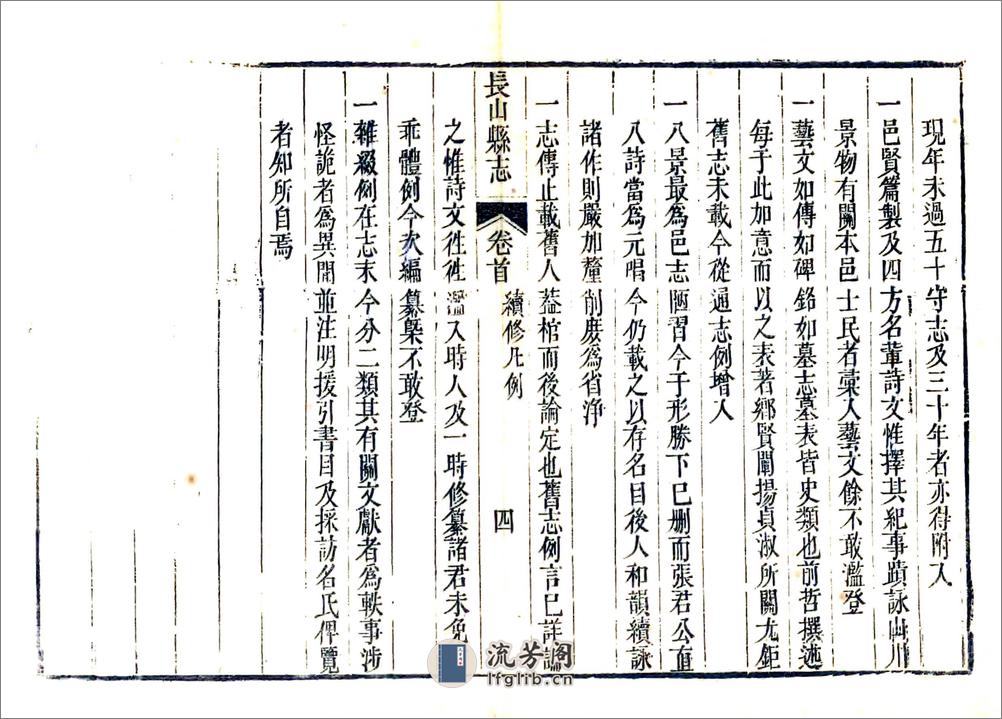 現年未過五十守志及三十年者亦得附入
一邑賢篇製及四方名輩詩文惟擇其紀事蹟詠山川
景物有關本邑士民者彙入藝文餘不敢濫登
一藝文如傳如碑銘如墓志墓表皆史類也前哲撰述
每于此加意而以之表著鄉賢闡揚貞淑所關尤鉅
舊志未載今從通志例增入
一八景最為邑志陋習今于形勝下已删而張君公直
八詩當為元唱今仍載之以存名目後人和韻續詠
諸作則嚴加釐削庻為省浄
一志傳止載舊人葢棺而後論定也舊志例言已詳論
長山縣志 卷首 續修凡例 四
之惟詩文徃徃濫入時人及一時修纂諸君未免
乖體例今次編纂槩不敢登
一雜綴例在志末今分二類其有關文獻者為軼事涉
怪詭者為異聞並注明援引書目及採訪名氏俾覽
者知所自焉
流芳阁
lfglib.cn